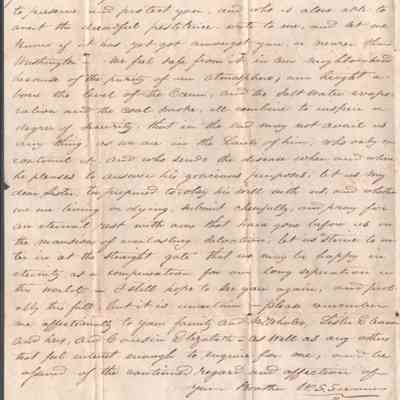 to preserve and protect you, and who is alone able to
avert the dreadful pestilence. write to me, and let me
know if it has yet got amongst you, or nearer than
Washington - We feel safe from it in our neighbourhood
because of the purity of our atmosphere, our height a-
bove the level of the and the Salt Water evapo-
ration and the Coal smoke, all combine to inspire a
degree of security, that in the end may not avail us
any thing, as we are in the hands of him, who only can
control it, and who sends the disease when and where
he pleases to answer his gracious purposes, let us my
dear Sister, be prepared to obey his will with us, and whether
we are living or dying, submit cheerfully, and pray for
an eternal rest with ours that have gone before us in
the mansions of everlasting delectation, let us strive to en-
ter in at the straight gate that we may be happy in
eternity as a compensation for our long seperation in
this world - I still hope to see you again, and prob-
ably this fall but it is uncertain - please remember
me affectionately to your family and Sister E
and and Cousin Elizabeth as well as any others
that feel interest enough to enquire for me, and be
assured of the continued regard and affection of
your Brother